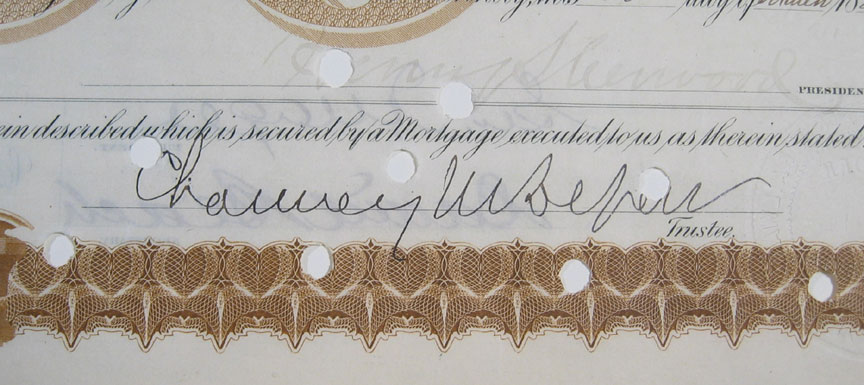 day of March 18
Sherwood
PRESIDEN
ein described which is secured by a Mortgage executed to us as therein stated
Chauncey M Depew
Trustee.